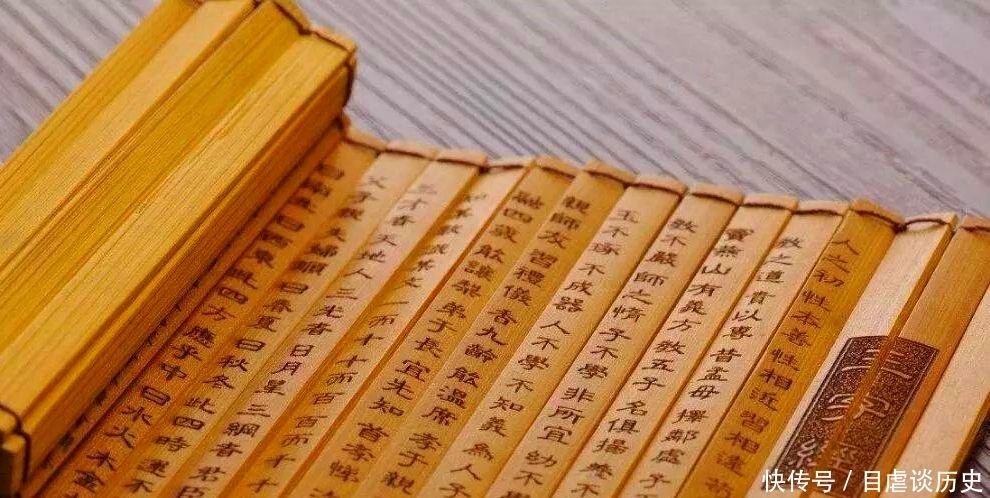 三字經
人之初性本善性相近習相遠苟
教之道貴以專昔孟母擇鄰處子
竇燕山有義方教五子名俱揚養不
教不嚴師之惰子不學非所宜幼不
玉不琢不成器人不學不知義為人子
親師友習禮儀香九齡能溫席孝于親
融四歲能讓梨弟于長宜先知首孝悌次
知某數識某文一而十十而百百而千
三才者天地人三光者日月星三綱者君臣
父子親夫婦順曰春夏曰秋冬此四時運不
曰南北曰西東此四方應乎中曰水火木金
快传号 / 目虐谈历史